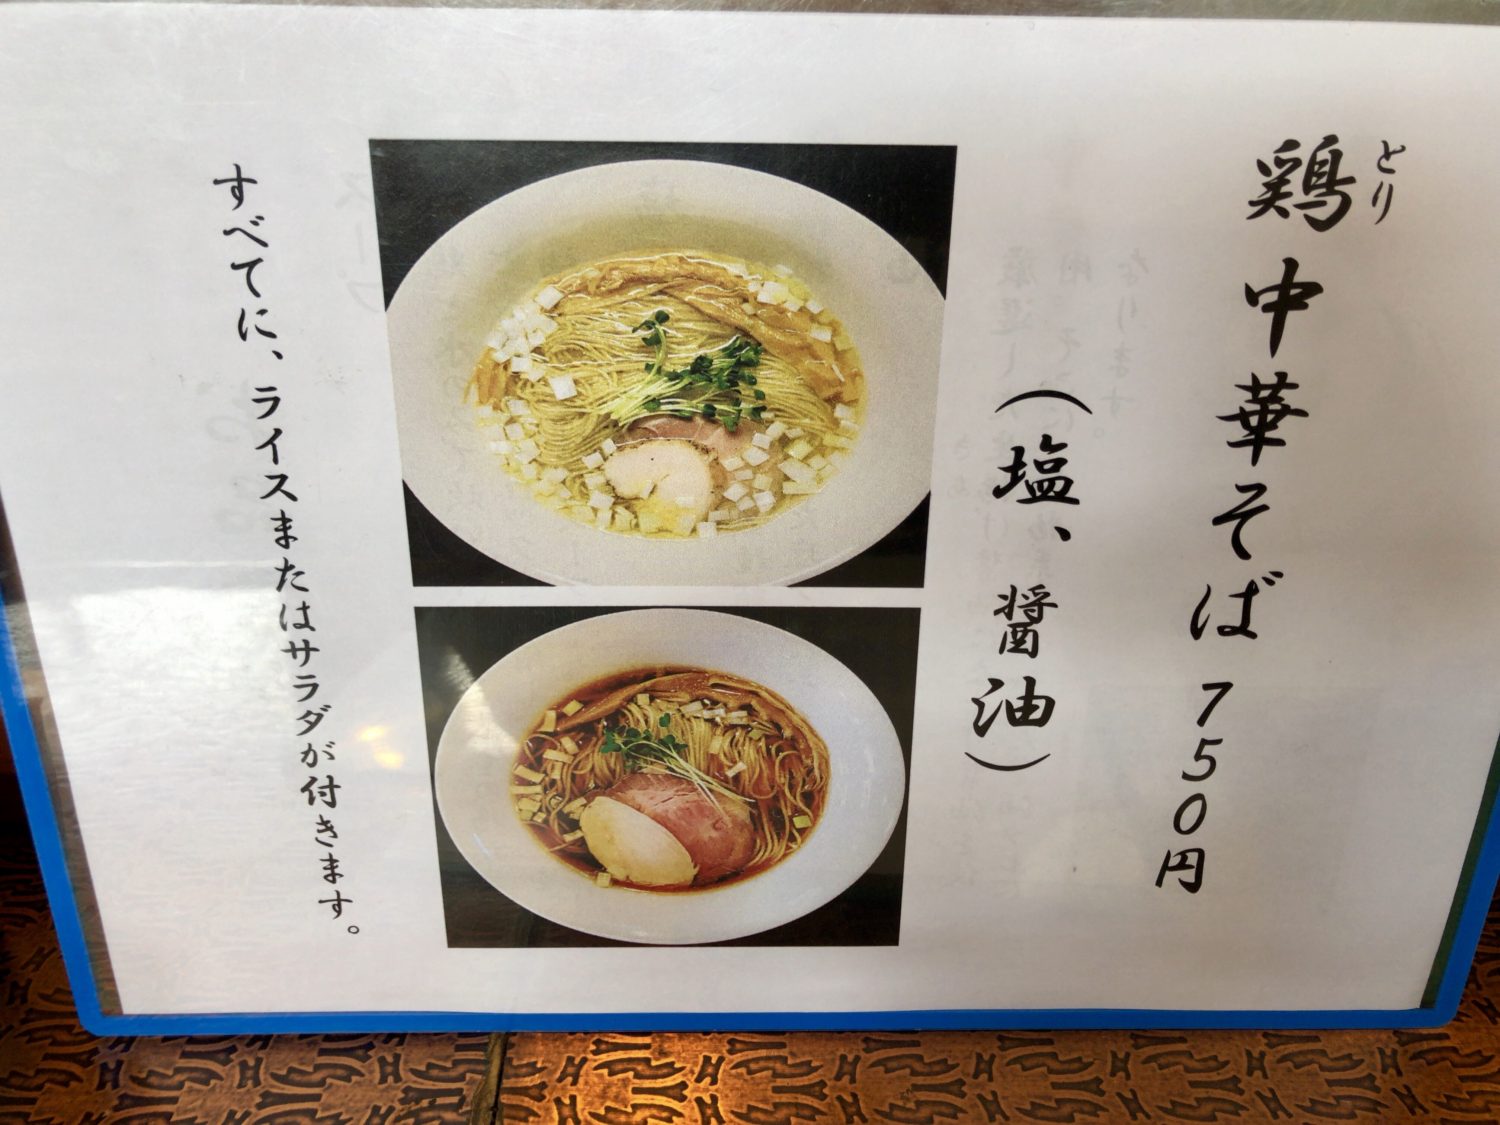 とり
鶏中華そば 750円
(塩、醤油)
すべてに、ライスまたはサラダが付きます。